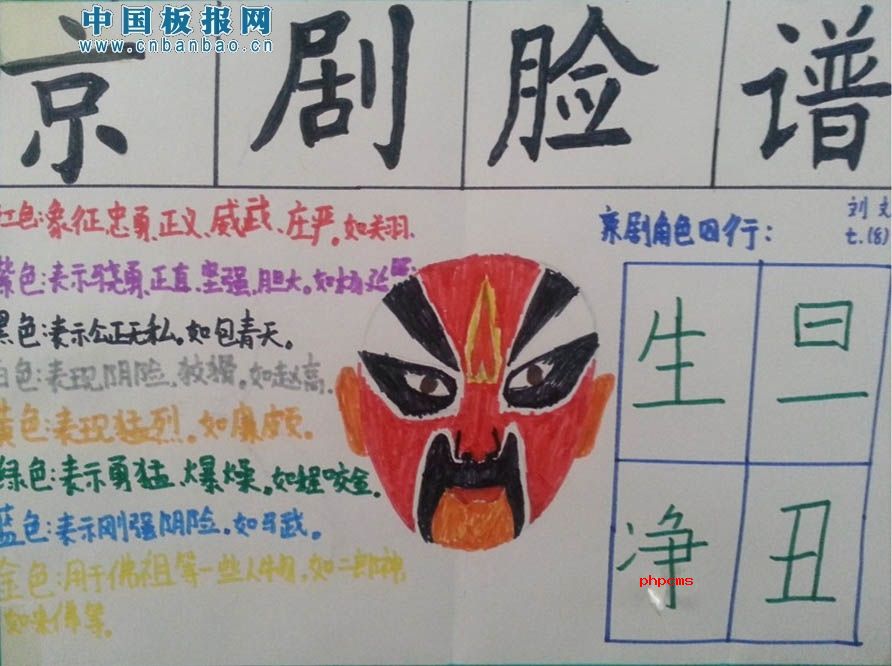 中国板报网
www.cnbanbao.cn
京剧脸谱
红色:象征忠勇、正义、威武、庄严。如关羽.
紫色:表示骁勇、正直、坚强、胆大。如
黑色:表示公正无私。如包青天。
白色:表现阴险、狡猾。如赵高.
黄色:表现猛烈。如廉颇。
绿色:表示勇猛、爆燥。如程咬金.
蓝色:表示刚强阴险。如
金色:用于佛祖等一些人物,如二郎神,
如来佛等。
京剧角色四行:
刘文
七.(8)
生 旦
净 丑
phpcms